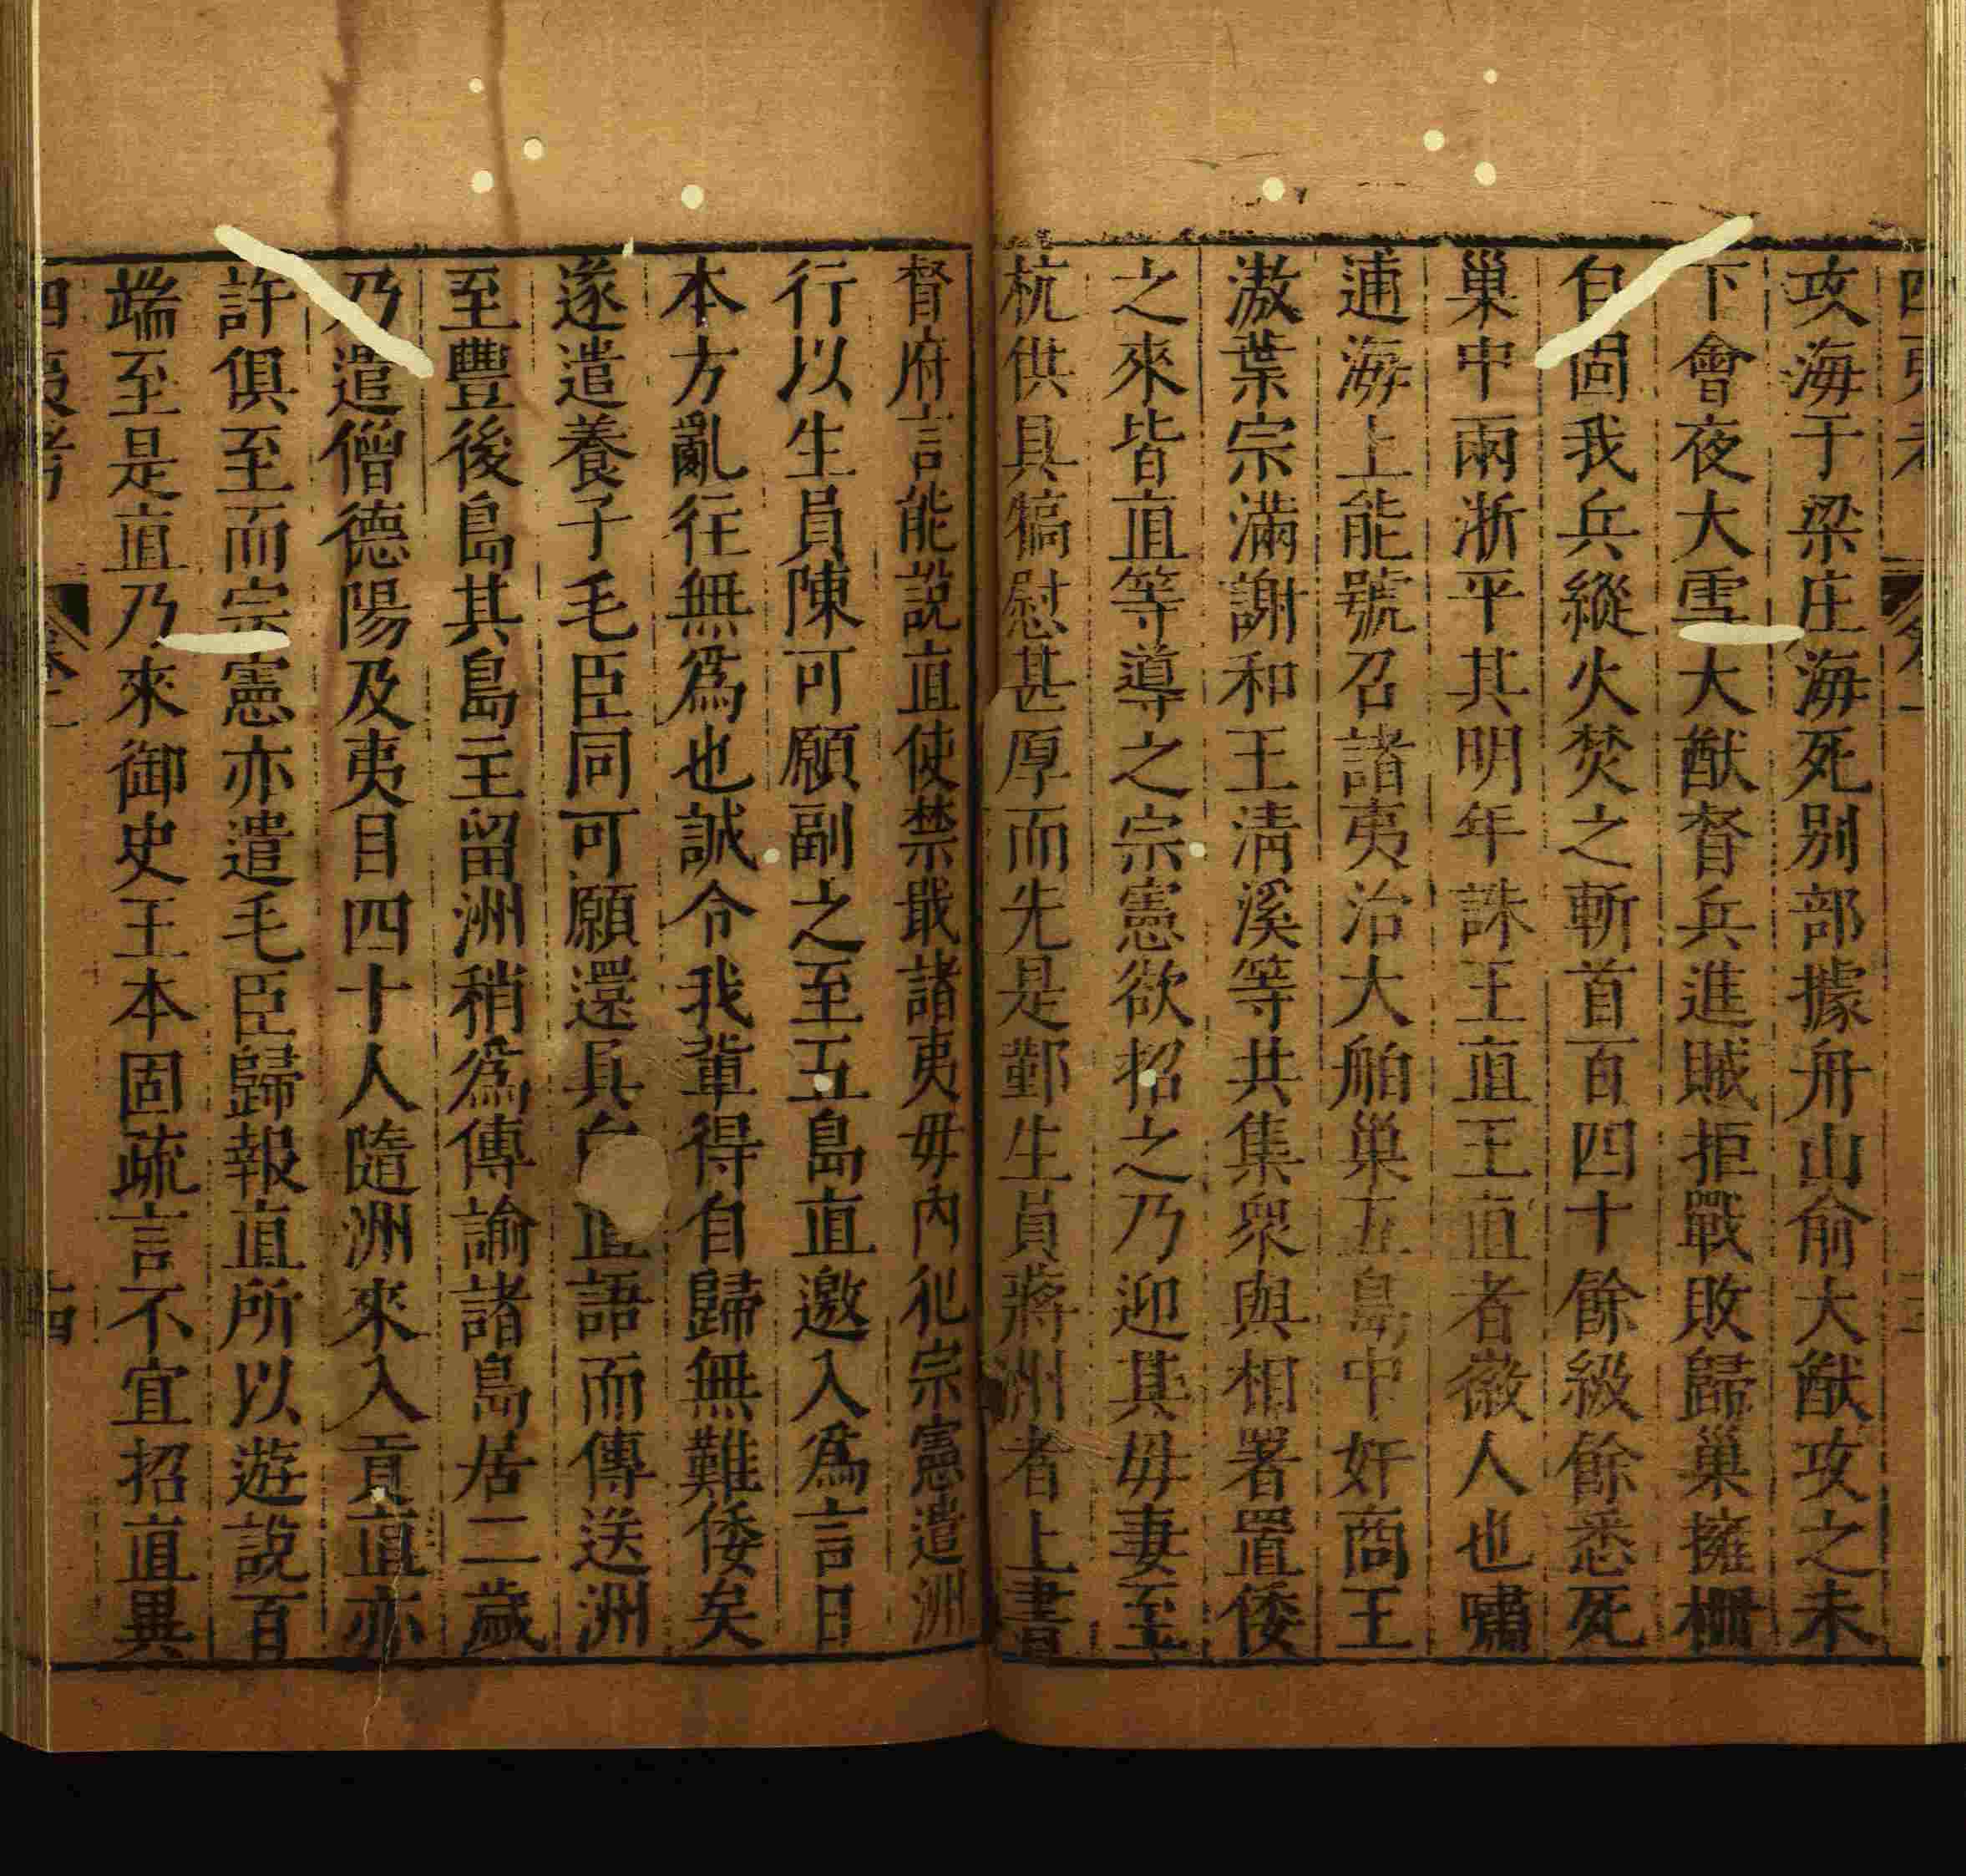 攻海于梁庄海死别部據舟山俞大猷攻之未
下會夜大雪大猷督兵進賊拒戰敗歸巢擁柵
自固我兵縱火焚之斬首百四十餘級餘悉死
巢中兩浙平其明年誅王直王直者徽人也嘯
逋海上能號召諸夷治大舶巢五島中奸商王
滶葉宗滿謝和王清溪等共集衆與相署置倭
之來皆直等導之宗憲欲招之乃迎其毋妻至
杭供具犒慰甚厚而先是鄞生員蔣洲者上書
督府言能說直使禁戢諸夷毋內犯宗憲遣洲
行以生員陳可願副之至五島直邀入爲言日
本方亂往無爲也誠令我輩得自歸無難倭矣
遂遣養子毛臣同可願還具直語而傳送洲
至豐後島其島主留洲稍爲傳諭諸島居二歲
乃遣僧德陽及夷目四十人隨洲來入貢直亦
許俱至而宗憲亦遣毛臣歸報直所以遊說百
端至是直乃來御史王本固疏言不宜招直異
四夷考